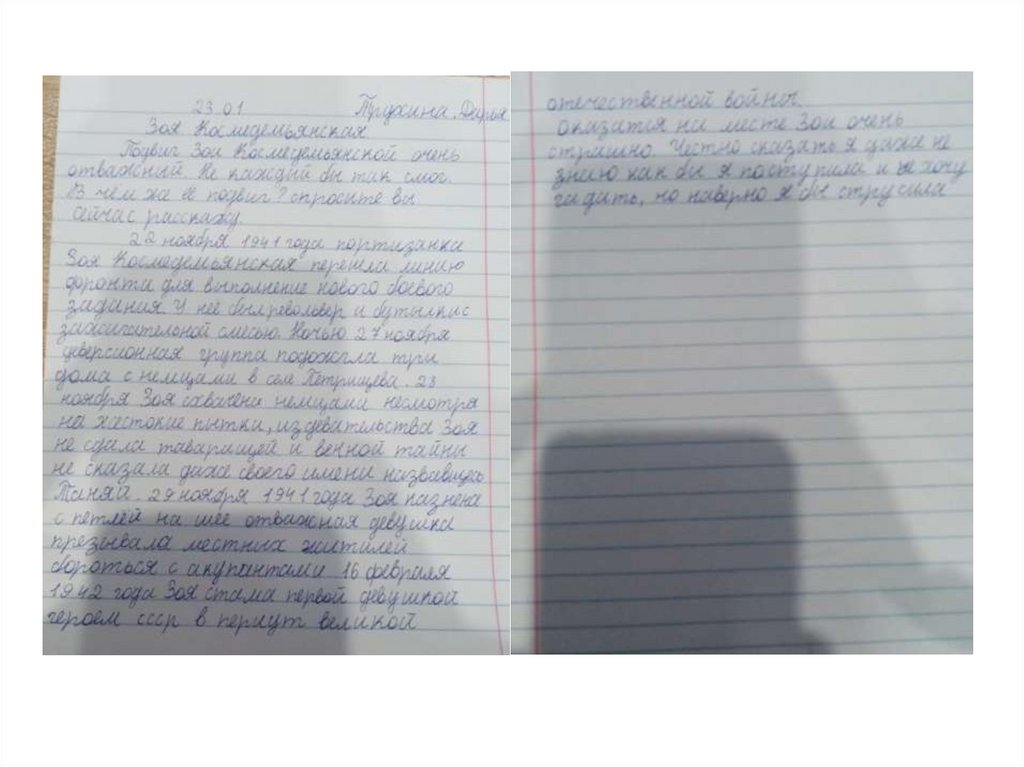 23 01 Пряхина Дарья
Зоя Космедемьянская
Подвиг Зои Космедемьянской очень
отважный. Не каждый бы так смог.
В чём же её подвиг? спросите вы
сейчас расскажу.
22 ноября 1941 года портизанка
Зоя Космедемьянская перешла линию
фронта для выполнение нового боевого
задания. У неё был револьвер и бутылки с
зажигательной смесью. Ночью 27 ноября
диверсионная группа подожгла три
дома с немцами в селе Петрищева. 23
ноября Зоя схвачена немцами несмотря
на жестокие пытки, издевательства Зоя
не сдала таварищей и военной тайны
не сказала даже своего имени назвавщись
Таняй. 29 ноября 1941 года Зоя казнена
с петлёй на шее отважная девушка
презывала местных жителей
сбороться с акупантами 16 февраля
1942 года Зоя стала первой девушкой
героем ссср в периут великой
отечественной войны.
оказатся на месте Зои очень
страшно. Честно сказать я даже не
знаю как бы я поступила и не хочу
гадать, но наверно я бы струсила